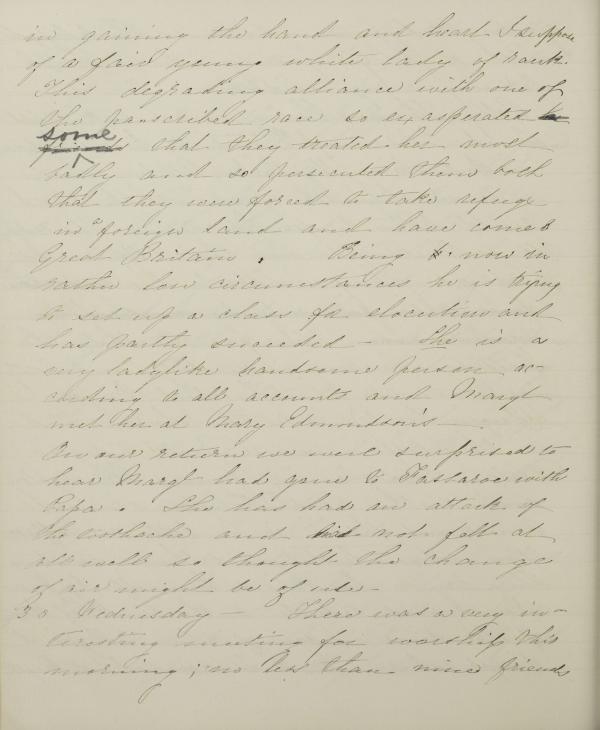 in gaining the hand and heart I suppose
of a fair young white lady of rank.
This degrading alliance with one of
the proscribed race so exasperated
some that they treated her most
badly and so persecuted them both
that they were forced to take refuge
in a foreign land and have come to
Great Britain. Being now in
rather low circumstances he is trying
to set up a class for elocution and
has partly succeeded - She is a
very ladylike handsome person ac-
cording to all accounts and Margt
met her at Mary Edmundson's -
On our return we were surprised to
hear Margt had gone to Fastaroe with
Papa. She has had an attack of
the toothache and not felt at
all well so thought the change
of air might be of use -
30 Wednesday - There was a very in-
teresting meeting for worship this
morning; no less than nine friends